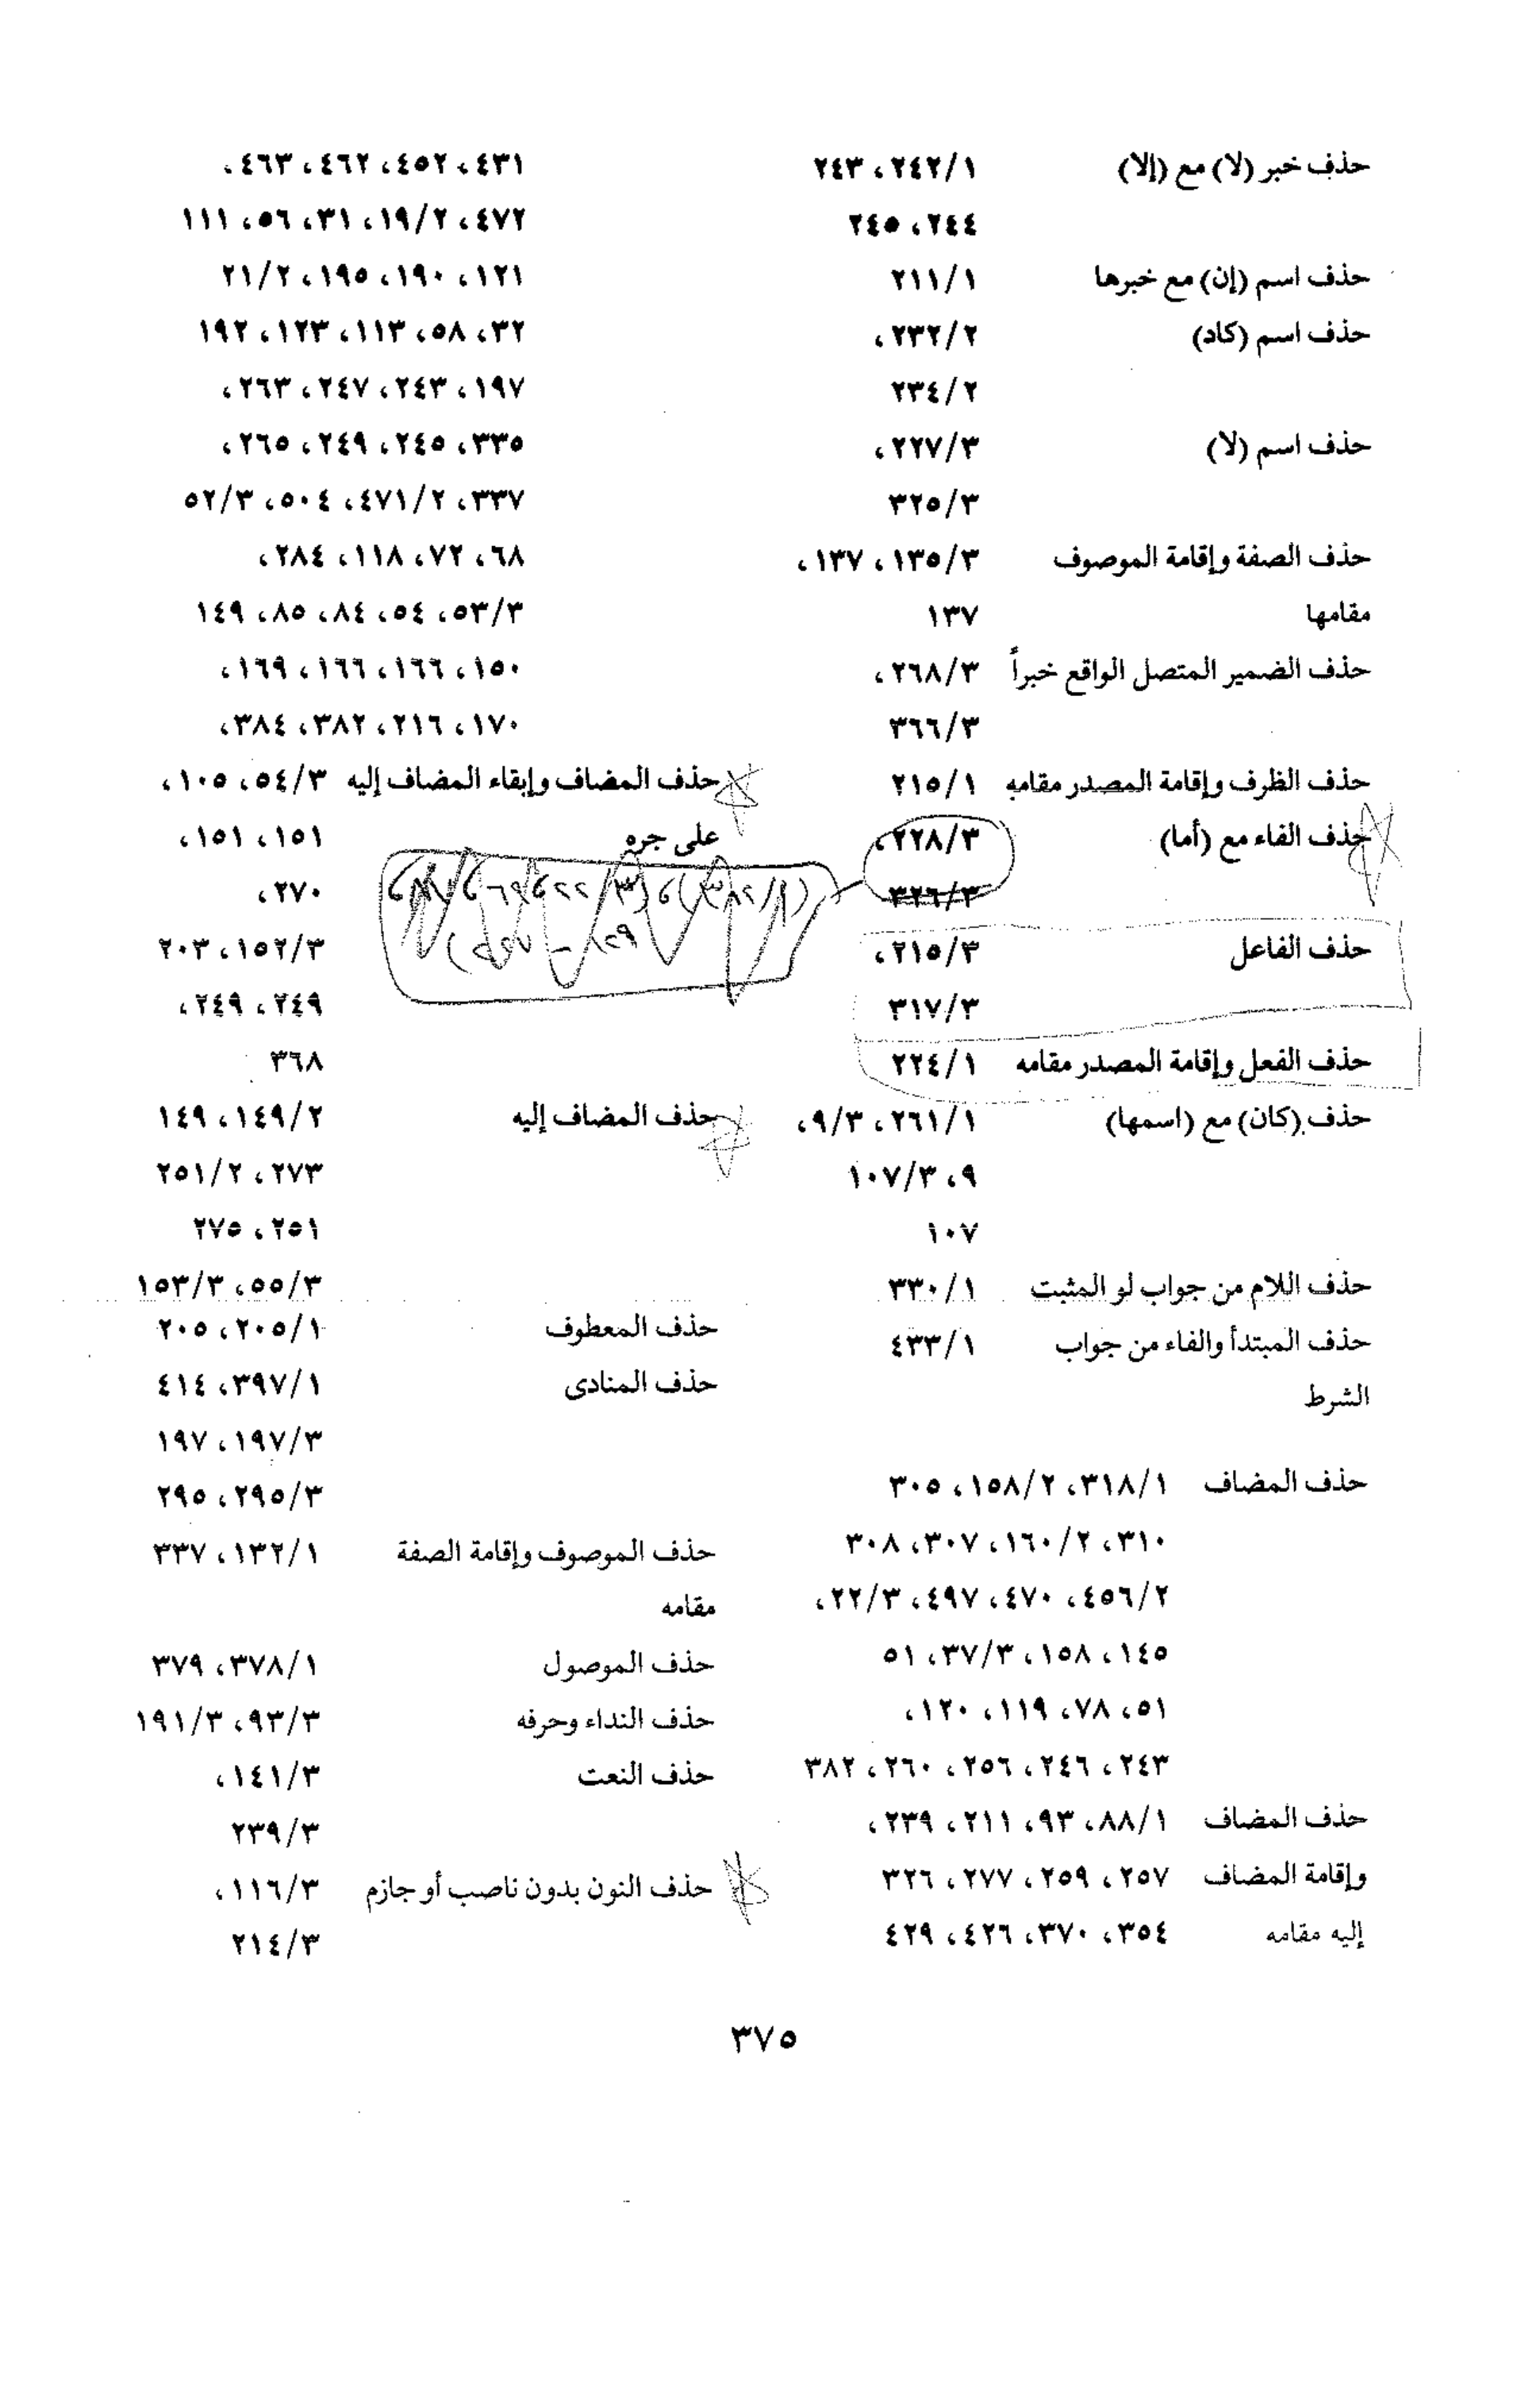 حذف خبر (لا) مع (إلا) ٢٤٢/١، ٢٤٣
٢٤٤، ٢٤٥
حذف اسم (إن) مع خبرها ٢١١/١
حذف اسم (كاد) ٢٣٢/٢،
٢٣٤/٢
حذف اسم (لا) ٢٢٧/٣،
٣٢٥/٣
حذف الصفة وإقامة الموصوف ١٣٥/٣، ١٣٧،
مقامها ١٣٧
حذف الضمير المتصل الواقع خبراً ٢٦٨/٣،
٣٦٦/٣
حذف الظرف وإقامة المصدر مقامه ٢١٥/١
حذف الفاء مع (أما) ٢٢٨/٣،
٣٢٦/٣
حذف الفاعل ٢١٥/٣،
٣١٧/٣
حذف الفعل وإقامة المصدر مقامه ٢٢٤/١
حذف (كان) مع (اسمها) ٢٦١/١، ٩/٣،
٩، ١٠٧/٣
١٠٧
حذف اللام من جواب لو المثبت ٣٣٠/١
حذف المبتدأ والفاء من جواب ٤٣٣/١
الشرط
حذف المضاف ٣١٨/١، ١٥٨/٢، ٣٠٥
٣١٠، ١٦٠/٢، ٣٠٧، ٣٠٨
٤٥٦/٢، ٤٧٠، ٤٩٧، ٢٢/٣،
١٤٥، ١٥٨، ٣٧/٣، ٥١
٥١، ٧٨، ١١٩، ١٢٠،
٢٤٣، ٢٤٦، ٢٥٦، ٢٦٠، ٣٨٢
حذف المضاف ٨٨/١، ٩٣، ٢١١، ٢٣٩،
وإقامة المضاف ٢٥٧، ٢٥٩، ٢٧٧، ٣٢٦
إليه مقامه ٣٥٤، ٣٧٠، ٤٢٦، ٤٢٩
٤٣١، ٤٥٢، ٤٦٢، ٤٦٣،
٤٧٢، ١٩/٢، ٣١، ٥٦، ١١١
١٢١، ١٩٠، ١٩٥، ٢١/٢
٣٢، ٥٨، ١١٣، ١٢٣، ١٩٢
١٩٧، ٢٤٣، ٢٤٧، ٢٦٣،
٣٣٥، ٢٤٥، ٢٤٩، ٢٦٥،
٣٣٧، ٤٧١/٢، ٥٠٤، ٥٢/٣
٦٨، ٧٢، ١١٨، ٢٨٤،
٥٣/٣، ٥٤، ٨٤، ٨٥، ١٤٩
١٥٠، ١٦٦، ١٦٦، ١٦٩،
١٧٠، ٢١٦، ٣٨٢، ٣٨٤،
حذف المضاف وإبقاء المضاف إليه ٥٤/٣، ١٠٥،
على جره ١٥١، ١٥١،
٢٧٠،
١٥٢/٣، ٢٠٣
٢٤٩، ٢٤٩،
٣٦٨
حذف المضاف إليه ١٤٩/٢، ١٤٩
٢٧٣، ٢٥١/٢
٢٥١، ٢٧٥
٥٥/٣، ١٥٣/٣
حذف المعطوف ٢٠٥/١، ٢٠٥
حذف المنادى ٣٩٧/١، ٤١٤
١٩٧/٣، ١٩٧
٢٩٥/٣، ٢٩٥
حذف الموصوف وإقامة الصفة ١٣٢/١، ٣٣٧
مقامه
حذف الموصول ٣٧٨/١، ٣٧٩
حذف النداء وحرفه ٩٣/٣، ١٩١/٣
حذف النعت ١٤١/٣،
٢٣٩/٣
حذف النون بدون ناصب أو جازم ١١٦/٣،
٢١٤/٣
٣٧٥